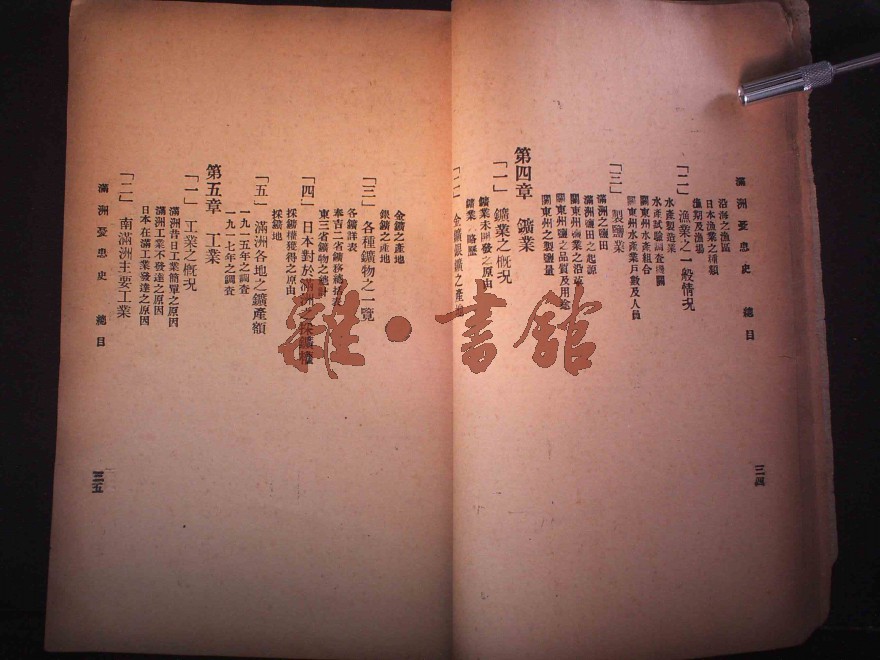 滿洲憂患史 總目
沿海之漁區
日本漁業之種類
漁期及漁場
「二」漁業之一般情况
水產製造業
水產試驗調查機關
關東州水產組合
關東州水產業戶數及人員
「三」製鹽業
滿洲之鹽田
滿洲鹽田之起源
關東州鹽業之沿革
關東州鹽之品質及用途
關東州之製鹽量
第四章 鑛業
「一」鑛業之概况
鑛業未開發之原由
鑛業 略歷
「二」金鑛銀鑛之產地
三四
金鑛之產地
銀鑛之產地
「三」各種鑛物之一覽
各鑛詳表
奉吉二省鑛移總括表
東三省鑛物之總計
「四」日本對於滿洲之採鑛權
採鑛權獲得之原由
採鑛地
「五」滿洲各地之鑛產額
一九一五年之調查
一九一七年之調查
第五章 工業
「一」工業之概况
滿洲昔日工業簡單之原因
滿洲工業不發達之原因
日本在滿工業發達之原因
「二」南滿洲主要工業
滿洲憂患史 總目
三五
雜·書館